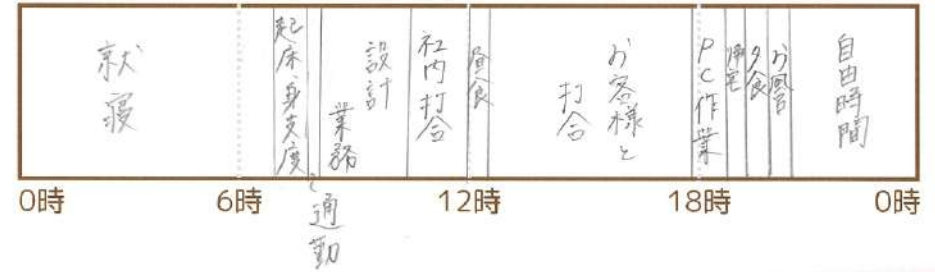 就寝
起床・身支度
通勤
設計
業務
社内打合
昼食
お客様と
打合
PC作業
帰宅
夕食
お風呂
自由時間
0時
6時
12時
18時
0時